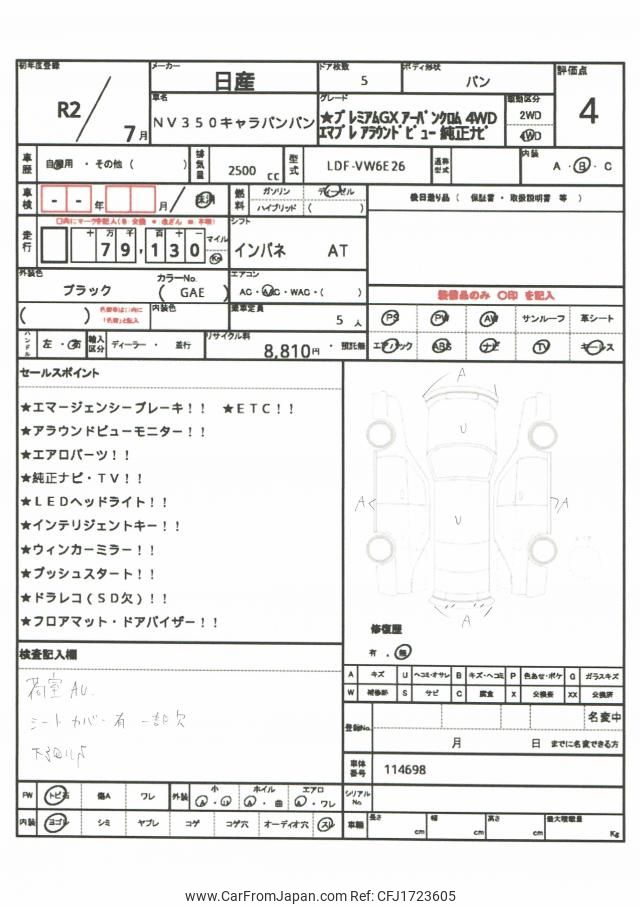 初年度登録
R2 / 7月
メーカー
日産
ドア枚数
5
ボディ形状
バン
評価点
4
車名
NV350キャラバンバン
グレード
★プレミアムGX アーバンクロム 4WD
エマブレ アラウンドビュー 純正ナビ
駆動区分
2WD
4WD
車歴
自家用 ・ その他 ( )
排気量
2500 cc
型式
LDF-VW6E26
通称型式
内装
A ・ B ・ C
車検
- - 年 月 / 抹消
燃料
ガソリン ディーゼル
ハイブリッド ( )
後日送り品 ( 保証書 ・ 取扱説明書 等 )
走行
十 万 千 百 十 一
79,130
マイル
Km
シフト
インパネ AT
外装色
ブラック
カラーNo.
( GAE )
エアコン
AC ・ AAC ・ WAC ・ ( )
装備品のみ 〇印 を記入
( )
内装色
乗車定員
5 人
PS PW AW サンルーフ 革シート
エアバック ABS ナビ TV キーレス
ハンドル
左 ・ 右
輸入区分
ディーラー ・ 並行
リサイクル料
8,810円 ・ 預託無
セールスポイント
★エマージェンシーブレーキ！！ ★ETC！！
★アラウンドビューモニター！！
★エアロパーツ！！
★純正ナビ・TV！！
★LEDヘッドライト！！
★インテリジェントキー！！
★ウィンカーミラー！！
★プッシュスタート！！
★ドラレコ(SD欠)！！
★フロアマット・ドアバイザー！！
A
U
A
A
U
A
修復歴
有 . 無
検査記入欄
荷室AU.
シートカバー有 一部欠
A キズ U ヘコミ・オサレ B キズ・ヘコミ P 色あせ・ボケ G ガラスキズ
W 補修跡 S サビ C 腐食 X 交換要 XX 交換済
登録No.
名変中
月 日 までに名変できる方
車体番号
114698
シリアルNo.
FW トビ石 傷A ワレ
外装 小 A ・ U ホイル A ・ 曲 エアロ A ・ ワレ
内装 ヨゴレ シミ ヤブレ コゲ コゲ穴 オーディオ穴 スレ
車輌 長さ cm 幅 cm 高さ cm 最大積載量 Kg
www.CarFromJapan.com Ref: CFJ1723605